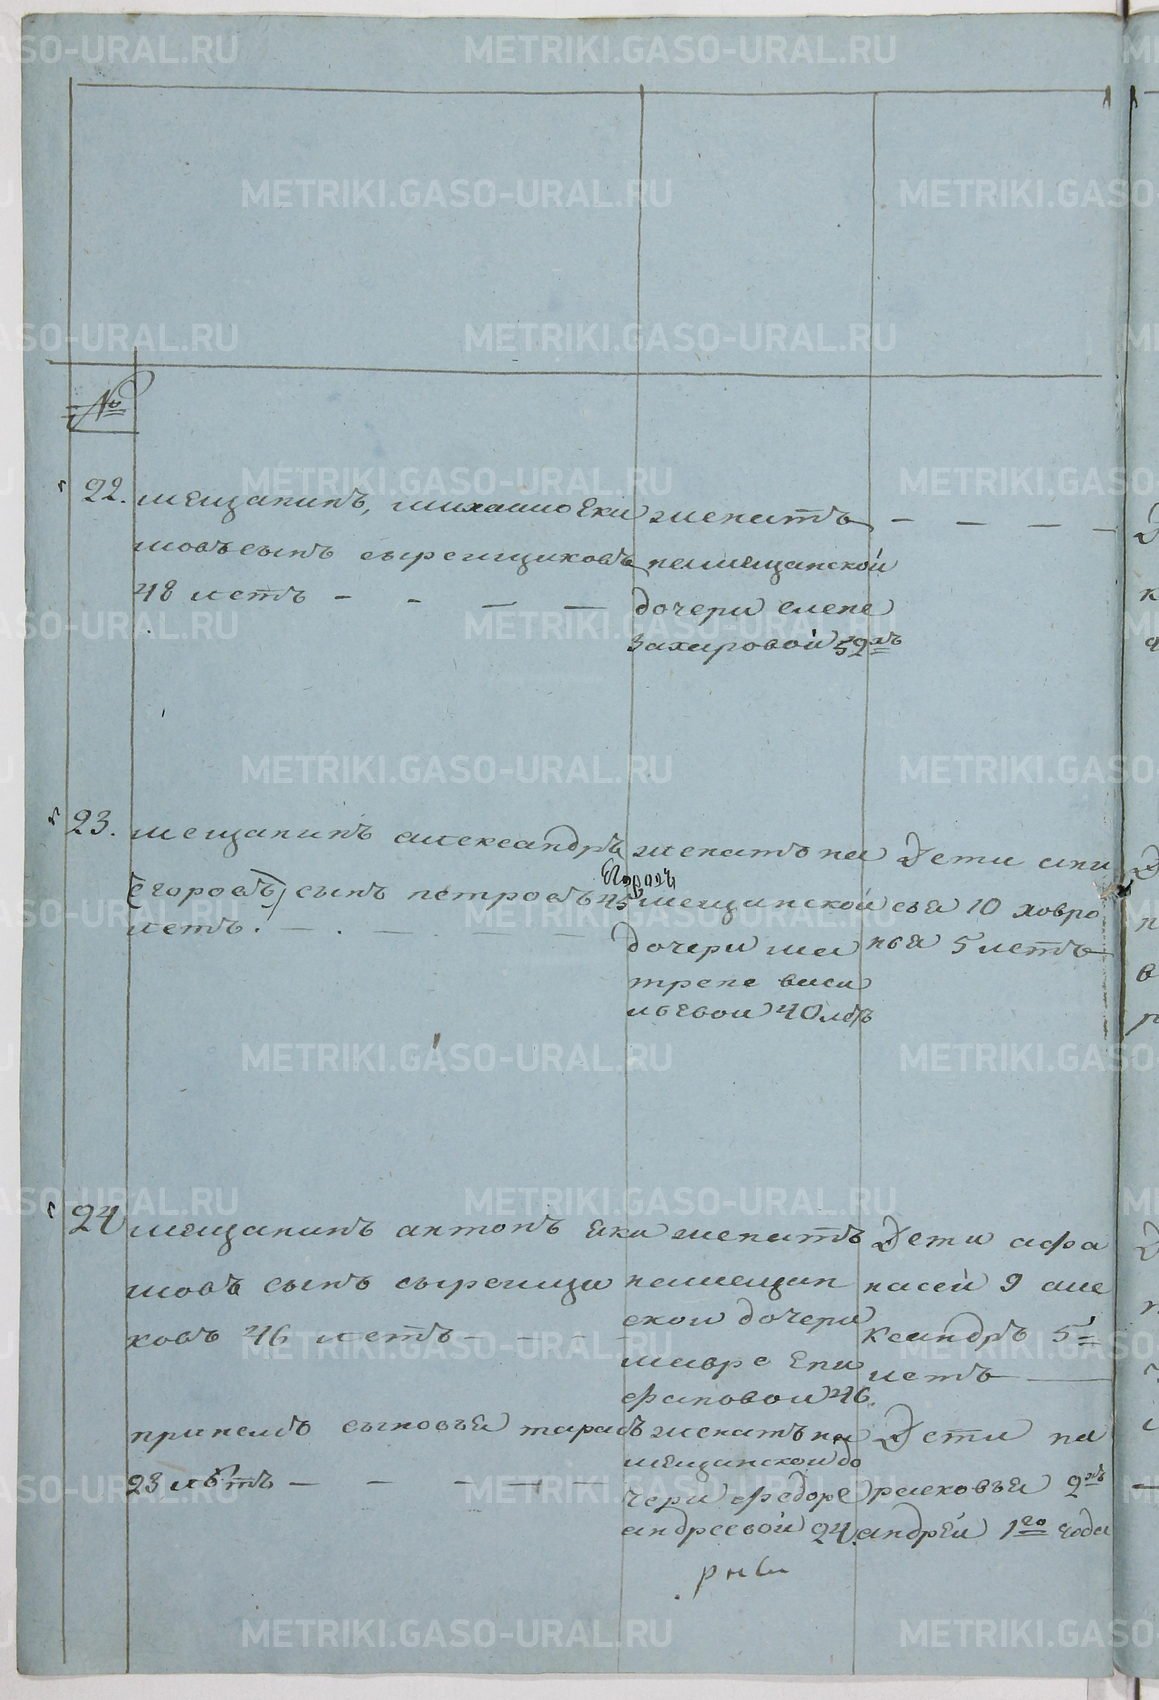 №
22. мещанинъ, михаило Еки
мовъ сынъ сыреищиковъ
48 летъ - - - -
женатъ - - - -
на мещанской
дочери елене
Захаровой 52хъ
23. мещанинъ александръ
(егоровъ) сынъ петровъ 45
летъ. - . - - -
Егоровъ
женатъ на
мещанской
дочери ма
трене васи
льевой 40 летъ
Дети али
сья 10 ховро
нья 5 летъ
24 мещанинъ антонъ Еки
мовъ сынъ сыреищи
ковъ 46 летъ - - -
женатъ
на мещан
ской дочери
мавре Епи
фановой 46.
Дети афа
насей 9 але
ксандръ 5=
летъ
при немъ сыновья тарасъ
23 лѣтъ - - - -
женатъ на
мещанской до
чери федоре
андреевой 24.
Дети па
расковья 2хъ
андрей 1го года
METRIKI.GASO-URAL.RU